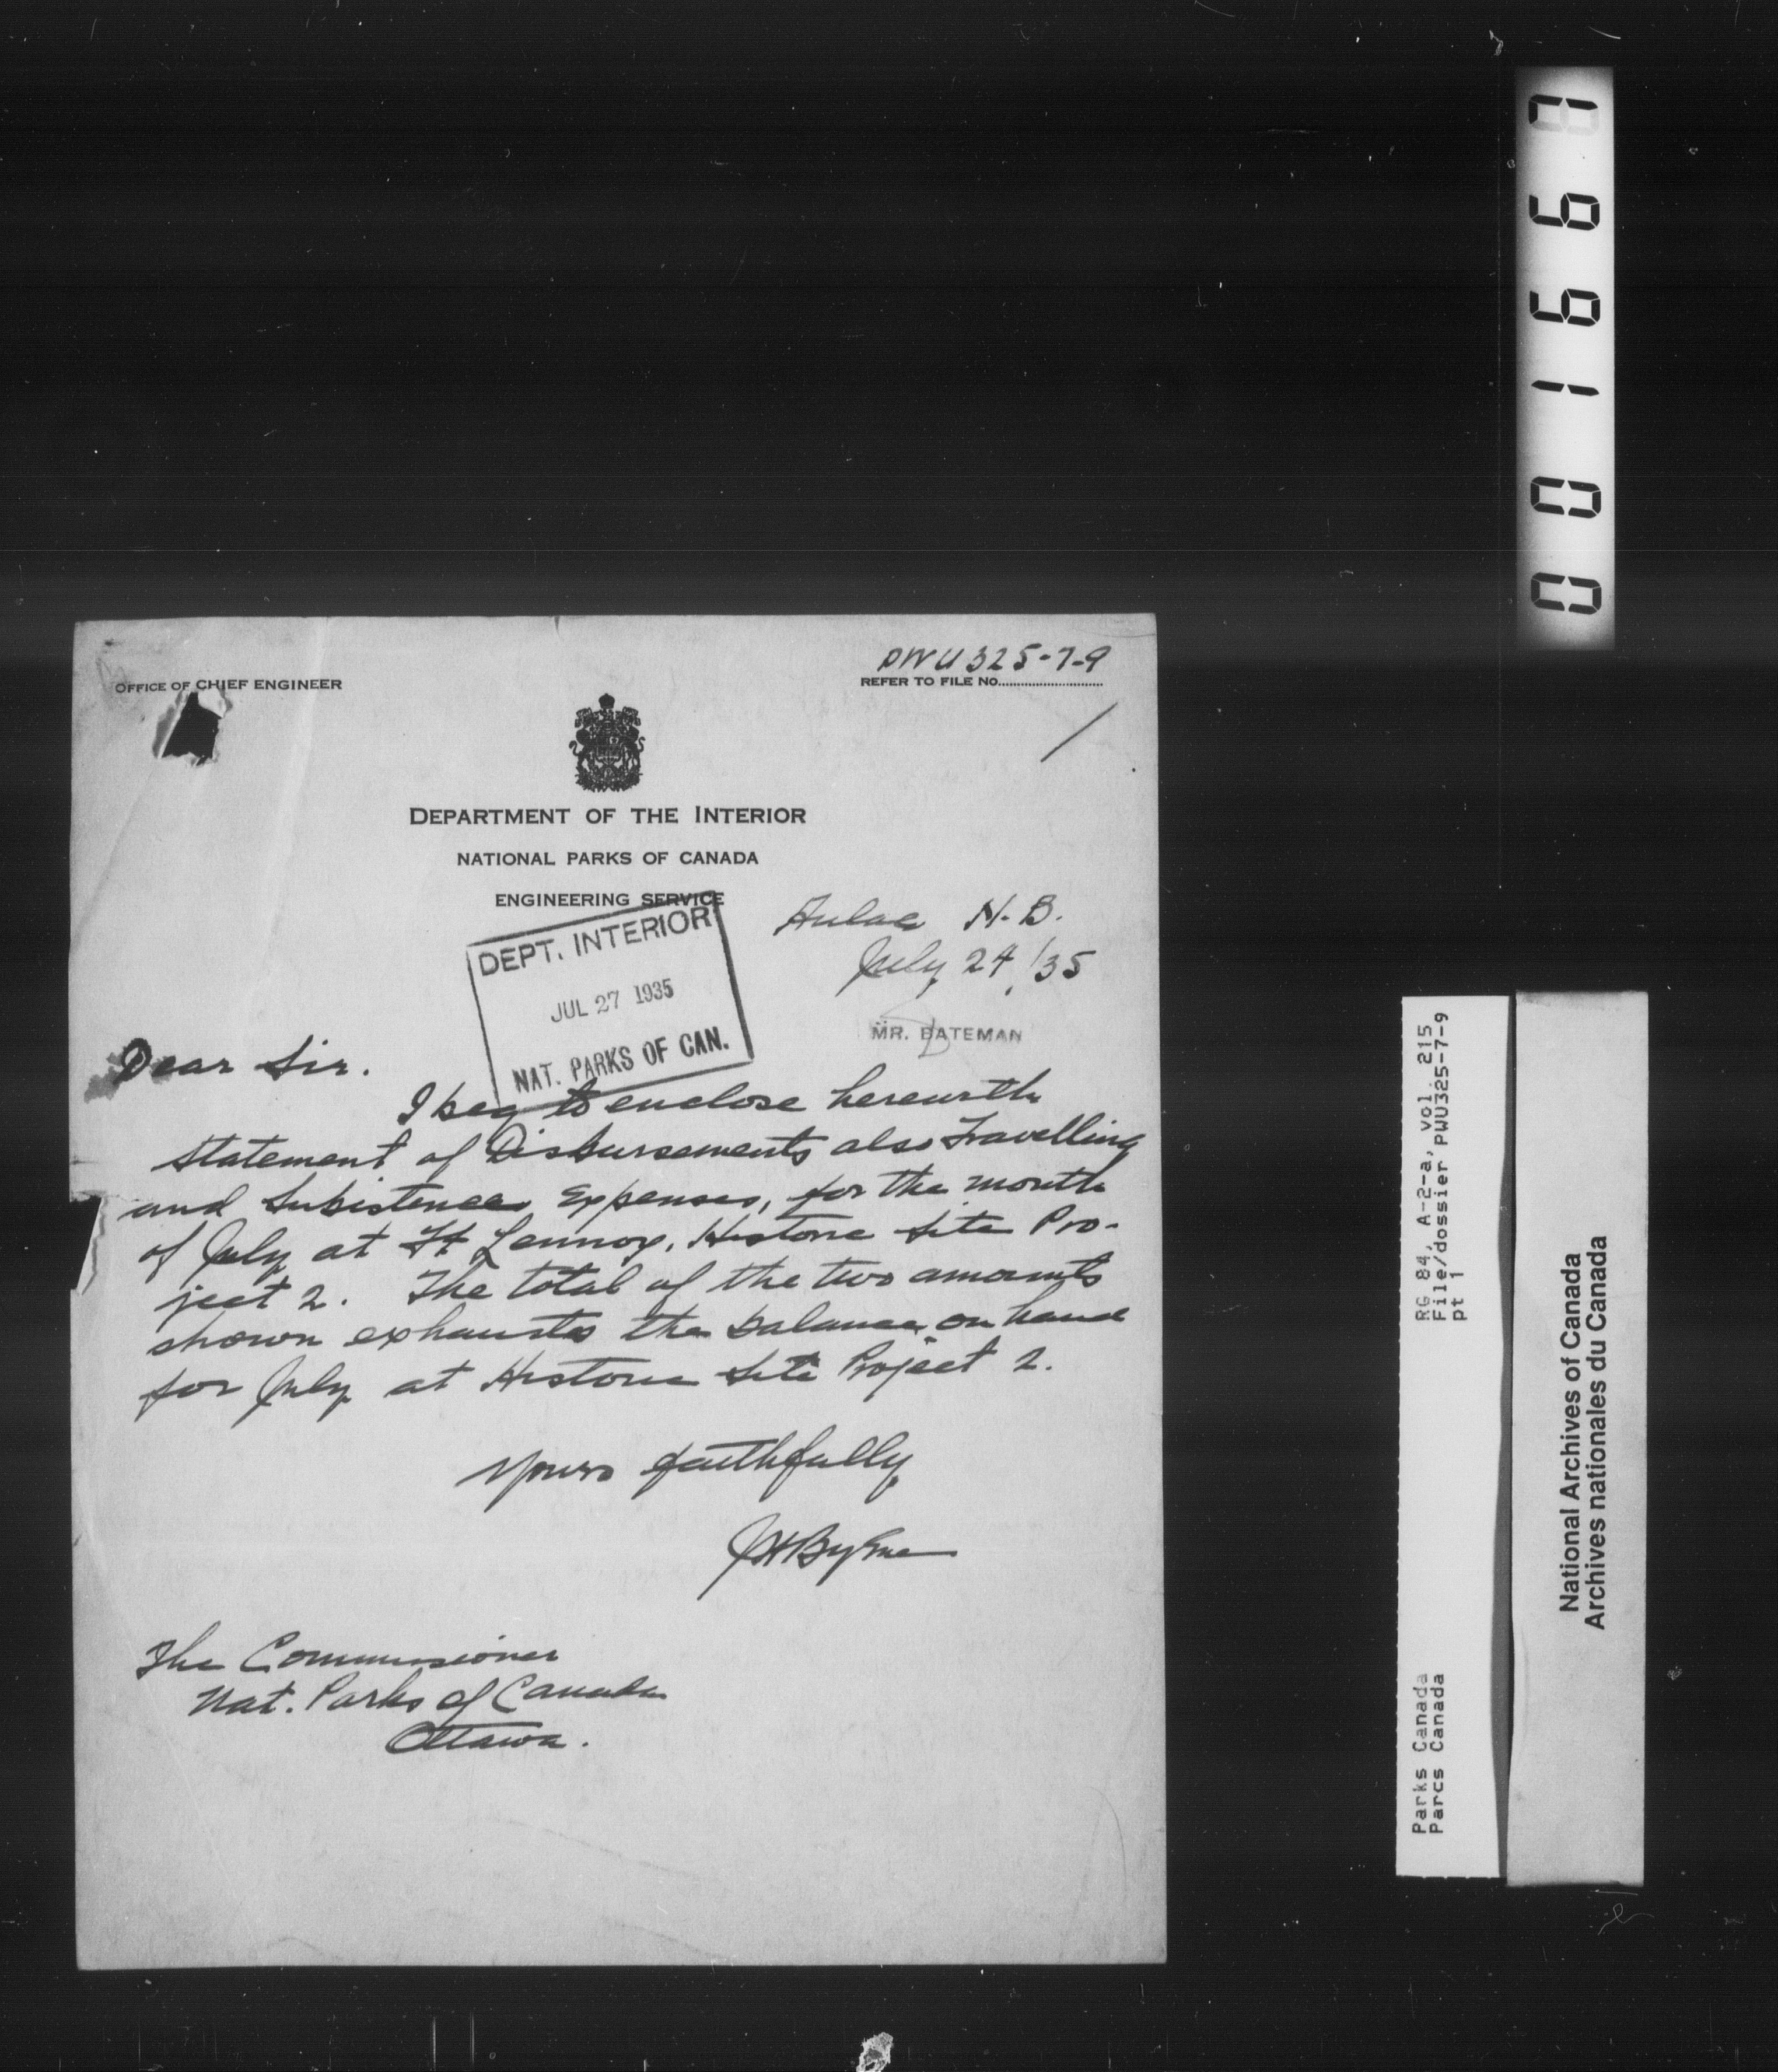 PWU 325-7-9
OFFICE OF CHIEF ENGINEER
REFER TO FILE No.
DEPARTMENT OF THE INTERIOR
NATIONAL PARKS OF CANADA
ENGINEERING SERVICE
DEPT. INTERIOR
JUL 27 1935
NAT. PARKS OF CAN.
Aulac N.B.
July 24/35
MR. BATEMAN
Dear Sir.
I beg to enclose herewith
statement of Disbursements also Travelling
and Subsistence Expenses, for the month
of July at Ft Lennox, Historic Site Pro-
ject 2. The total of the two amounts
shown exhausts the balance on hand
for July at Historic Site Project 2.
Yours faithfully
JHByrne
The Commissioner
Nat. Parks of Canada
Ottawa.
RG 84, A-2-a, vol. 215,
File/dossier PWU325-7-9
pt 1
Parks Canada
Parcs Canada
National Archives of Canada
Archives nationales du Canada